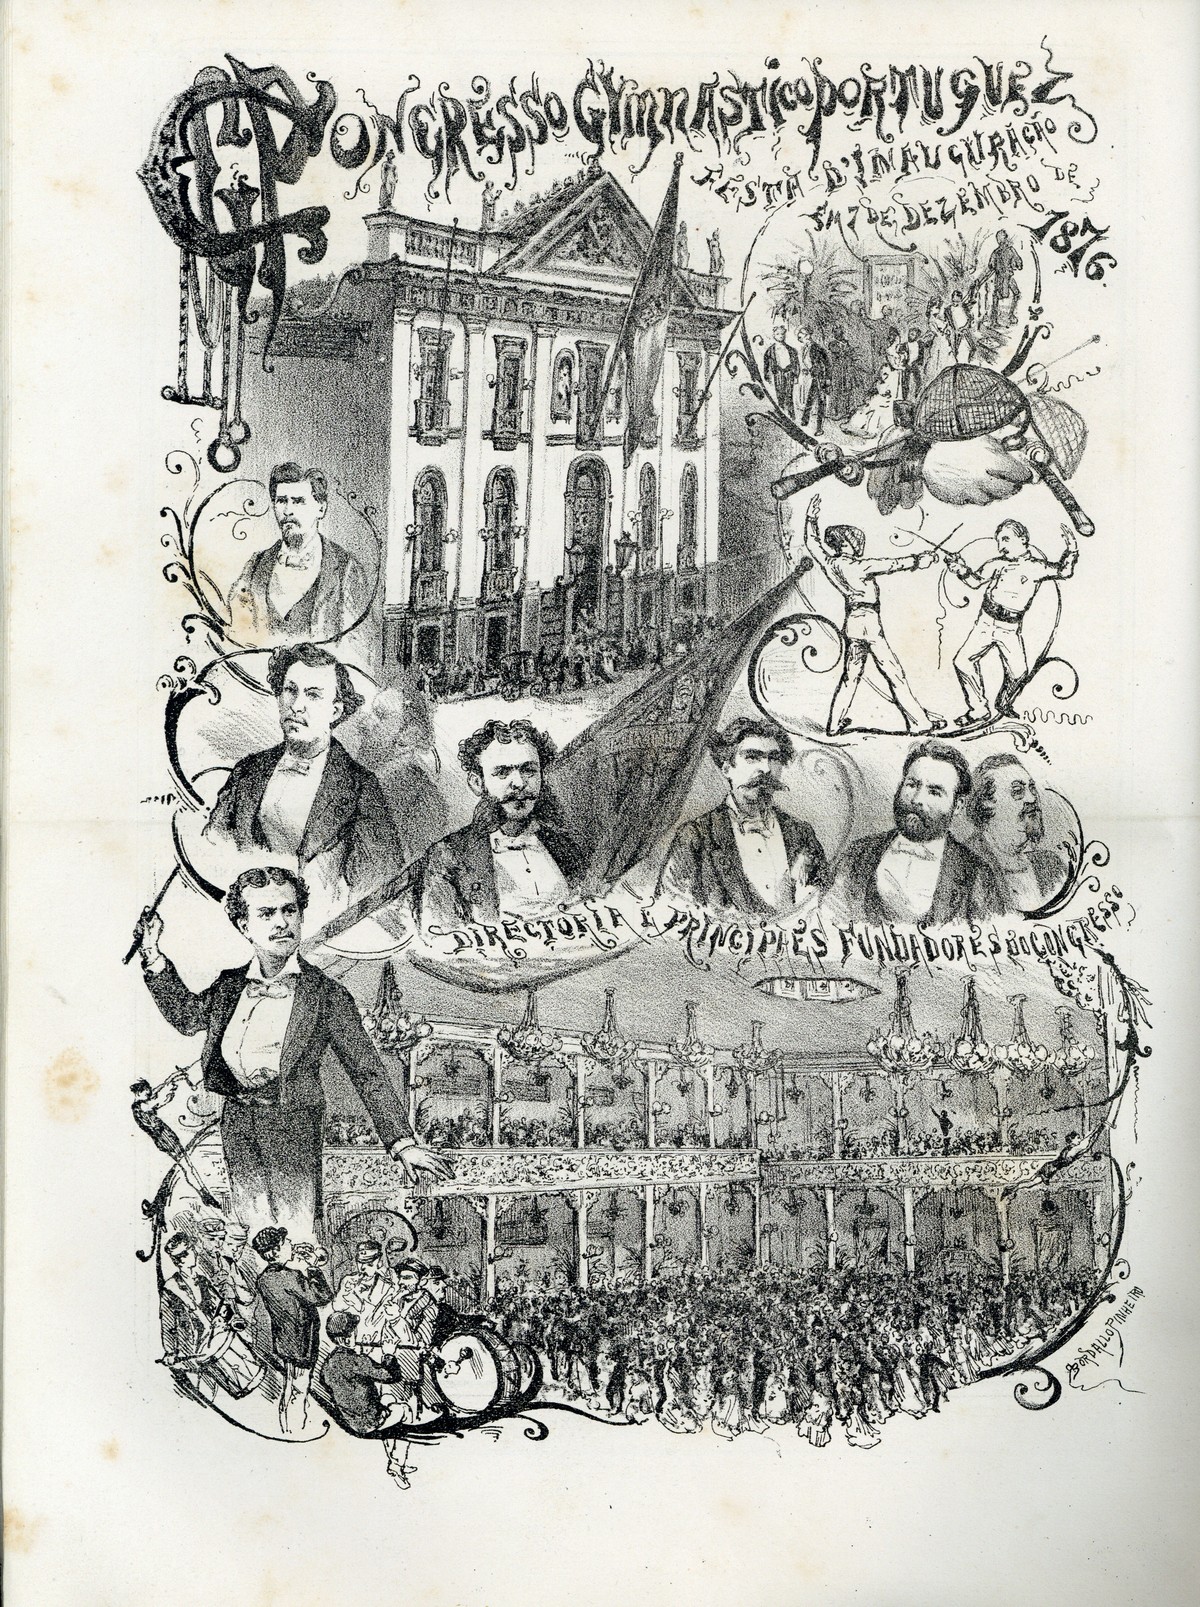 CONGRESSO GYMNASTICO PORTUGUEZ
FESTA D'INAUGURAÇÃO
EM 7 DE DEZEMBRO DE
1876.
DIRECTORIA E PRINCIPAES FUNDADORES DO CONGRESSO
BORDALLO PINHEIRO